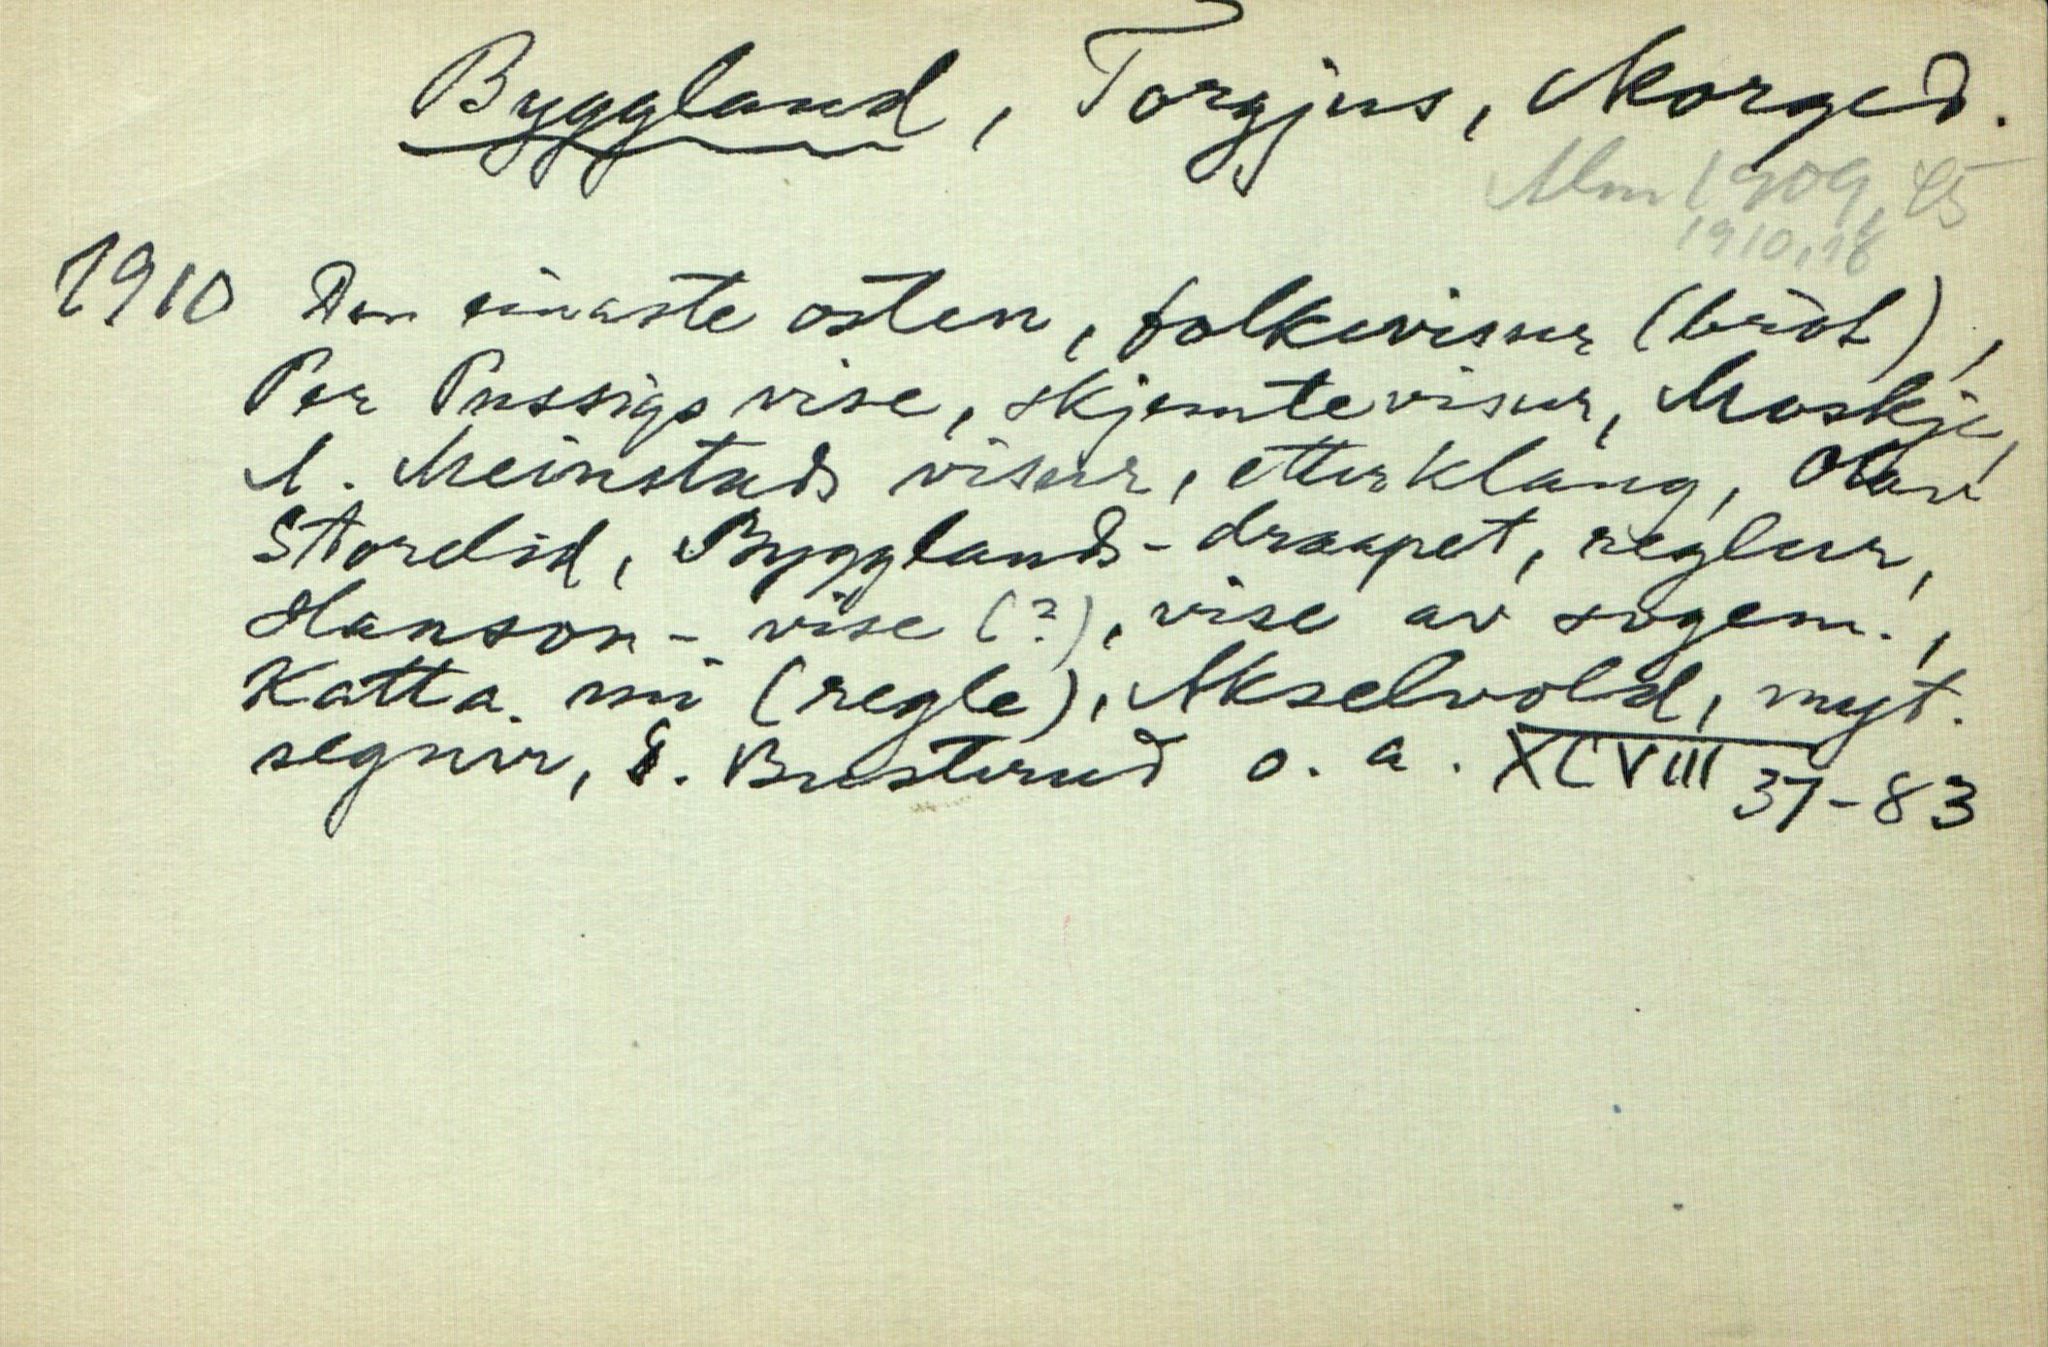 Byggland, Torgjus, Morgedal.
Mm 1909, 85
1910, 18
1910 Den einaste osten, folkevisur (bròt),
Per Pussigs vise, skjemtevisur, Moskje,
A. Meinstads visur, etterklang, Olav
Stordid, Bygglands-draapet, reglur,
Hanson-vise (?), vise av sogem.,
Katta mi (regle), Akselvold, myt.
segner, S. Busterud o. a. XCVIII 37-83